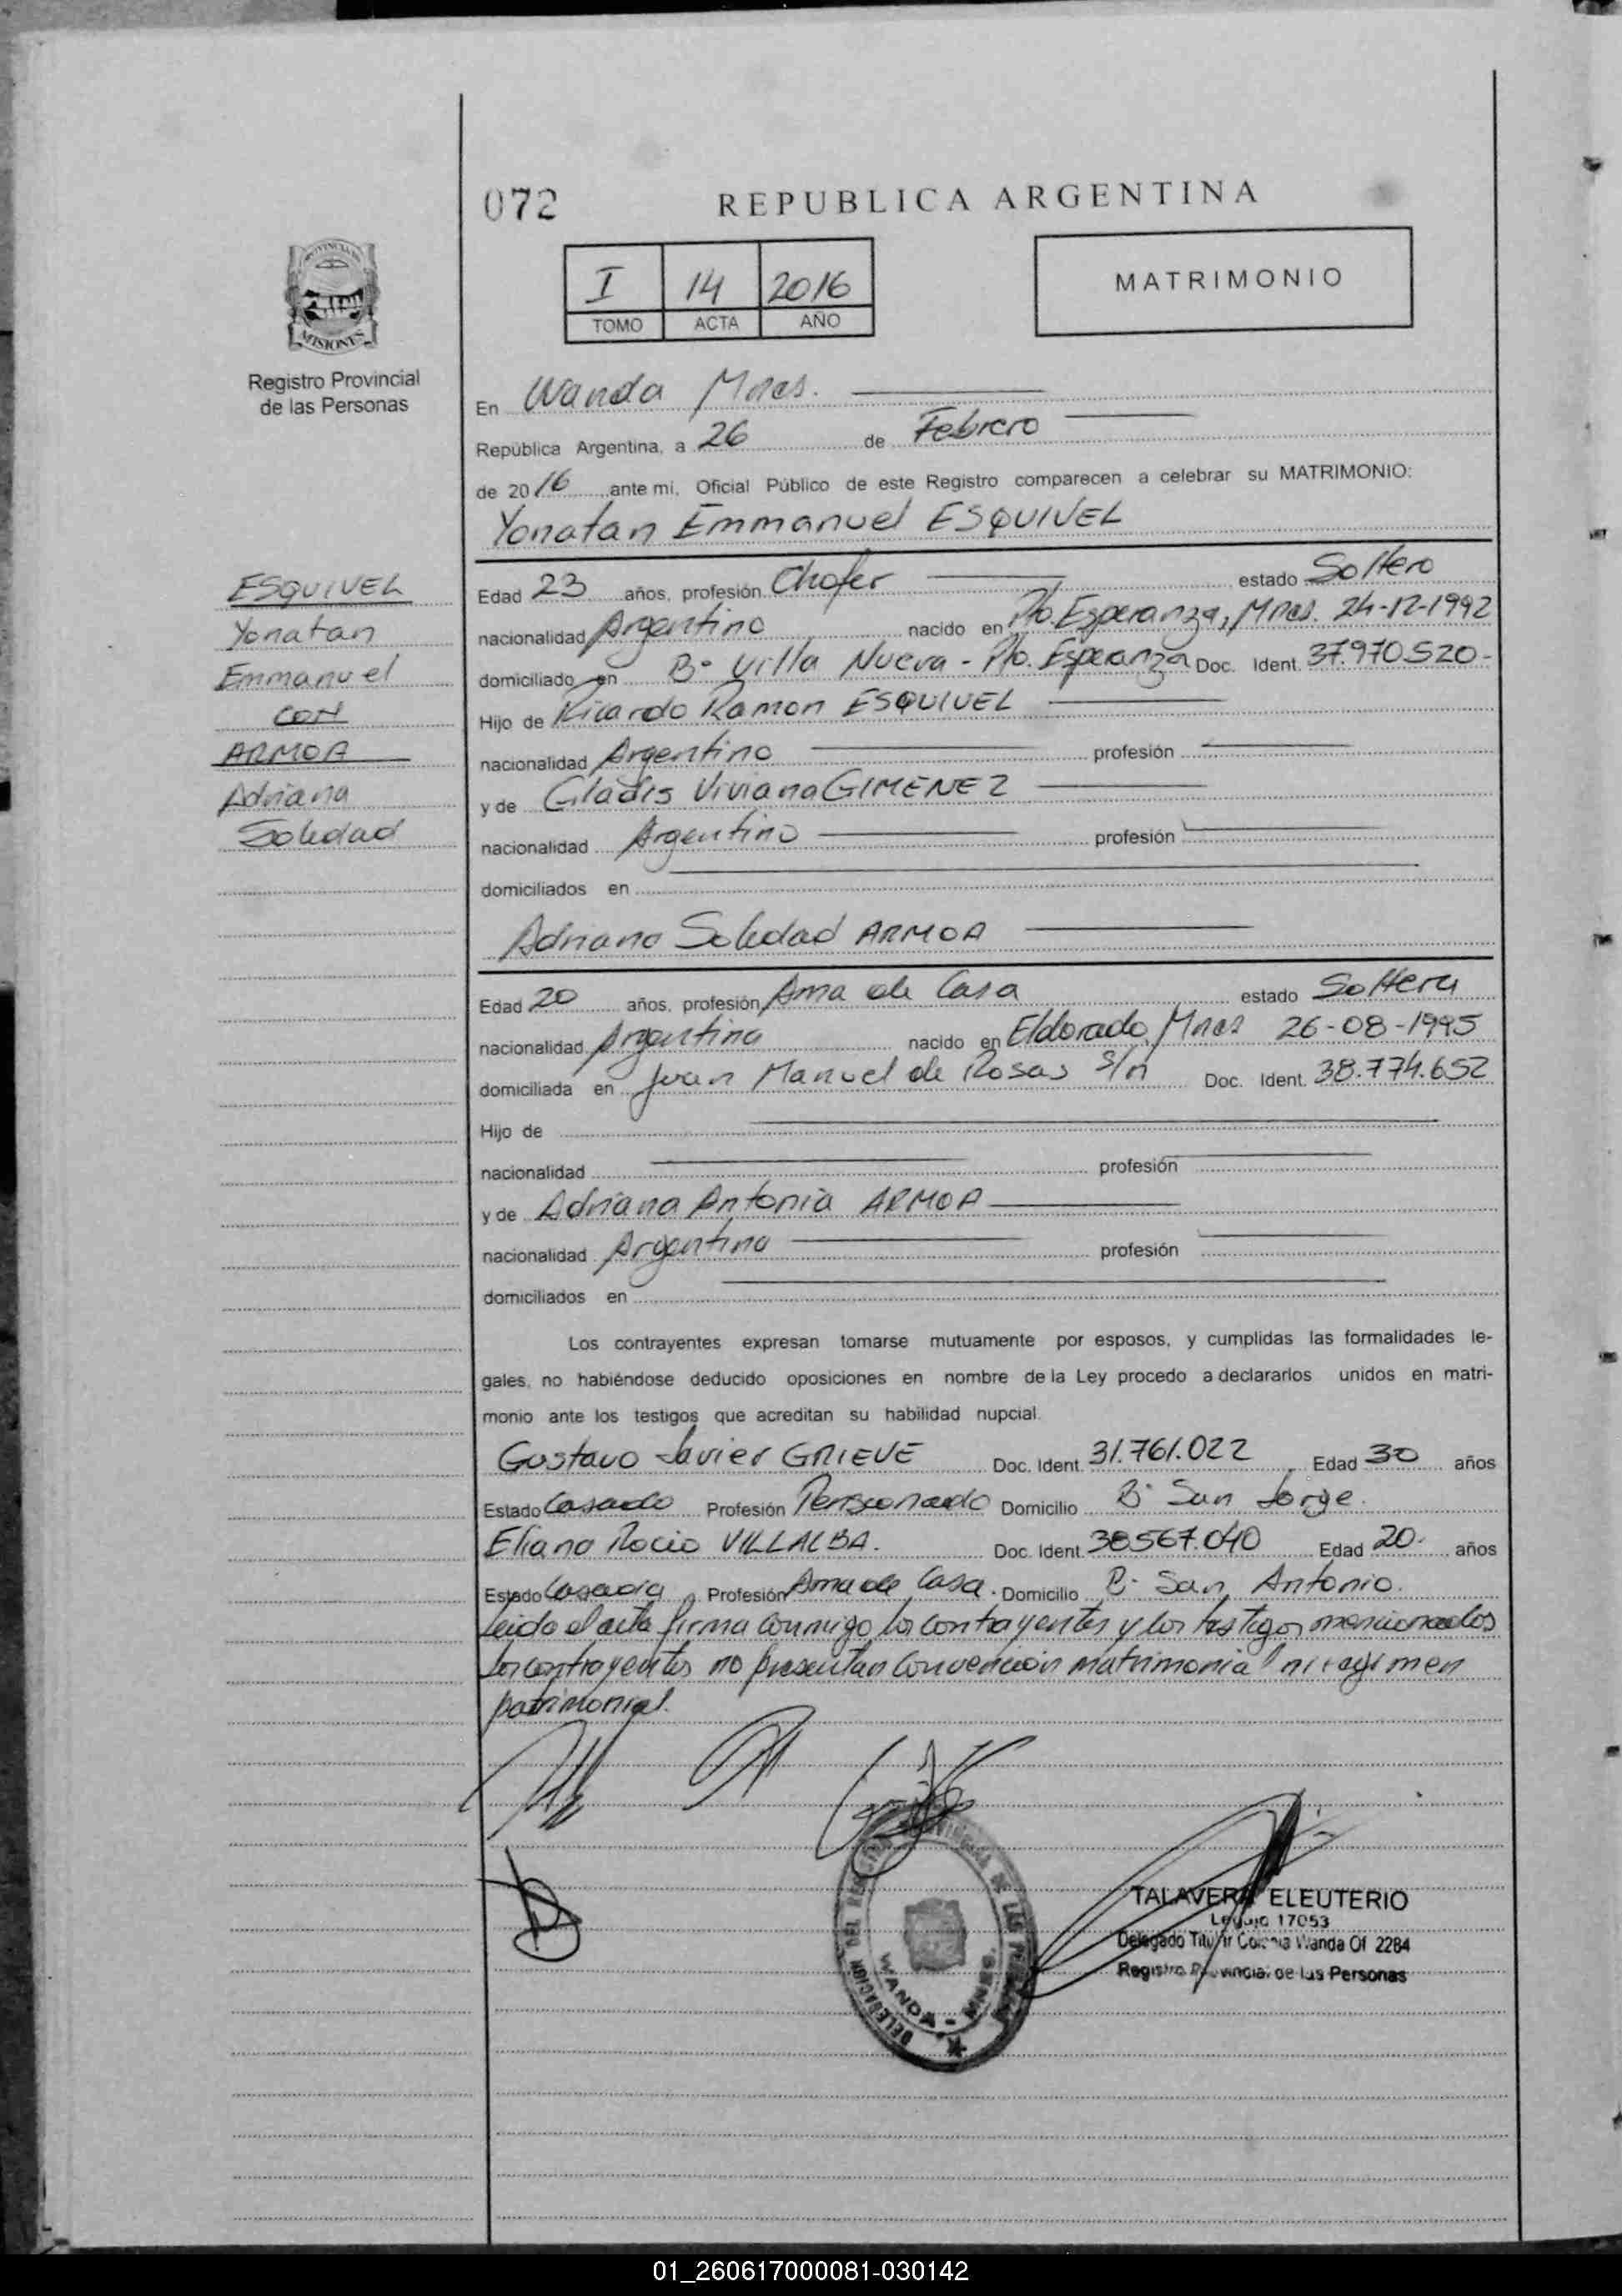 072
REPUBLICA ARGENTINA
PROVINCIA DE
MISIONES
Registro Provincial
de las Personas
I 14 2016
TOMO ACTA AÑO
MATRIMONIO
En Wanda Mnes.
República Argentina, a 26 de Febrero
de 2016 ante mi, Oficial Público de este Registro comparecen a celebrar su MATRIMONIO:
Yonatan Emmanuel ESQUIVEL
ESQUIVEL
Yonatan
Emmanuel
CON
ARMOA
Adriana
Soledad
Edad 23 años, profesión Chofer estado Soltero
nacionalidad Argentino nacido en Pto. Esperanza, Mnes. 24-12-1992
domiciliado en B° Villa Nueva - Pto. Esperanza Doc. Ident. 37.970520-
Hijo de Ricardo Ramon ESQUIVEL
nacionalidad Argentino profesión
y de Gladis Viviana GIMENEZ
nacionalidad Argentina profesión
domiciliados en
Adriana Soledad ARMOA
Edad 20 años, profesión Ama de Casa estado Soltera
nacionalidad Argentina nacido en Eldorado, Mnes 26-08-1995
domiciliada en Juan Manuel de Rosas s/n Doc. Ident. 38.774.652
Hijo de
nacionalidad profesión
y de Adriana Antonia ARMOA
nacionalidad Argentina profesión
domiciliados en
Los contrayentes expresan tomarse mutuamente por esposos, y cumplidas las formalidades le-
gales, no habiéndose deducido oposiciones en nombre de la Ley procedo a declararlos unidos en matri-
monio ante los testigos que acreditan su habilidad nupcial.
Gustavo Javier GRIEVE Doc. Ident. 31.761.022 Edad 30 años
Estado Casado Profesión Pensionado Domicilio B° San Jorge.
Eliana Rocio VILLALBA. Doc. Ident. 38567.040 Edad 20. años
Estado Casada Profesión Ama de Casa. Domicilio B° San Antonio.
Leida el acta firma conmigo los contrayentes y los testigos mencionados
los contrayentes no presentan Convención matrimonial ni regimen
patrimonial.
DELEGACION DEL REGISTRO PROVINCIAL DE LAS PERSONAS
WANDA - MNES.
TALAVERA ELEUTERIO
Legajo 17053
Delegado Titular Colonia Wanda Of 2284
Registro Provincial de las Personas
01_260617000081-030142